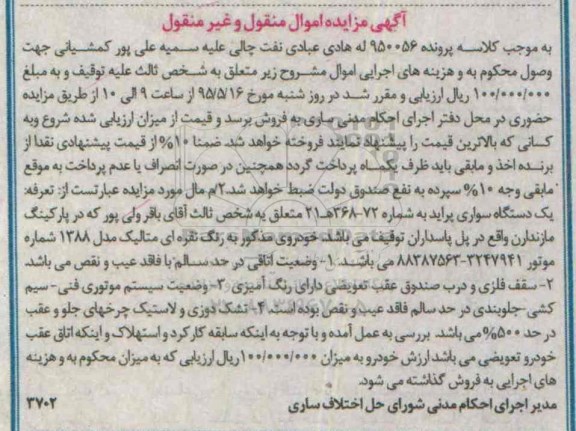 آگهی مزایده اموال منقول و غیر منقول
به موجب کلاسه پرونده ۹۵۰۰۵۶ له هادی عبادی نفت چالی علیه سمیه علی پور کمشیانی جهت
وصول محکوم به و هزینه های اجرایی اموال مشروح زیر متعلق به شخص ثالث علیه توقیف و به مبلغ
۱۰۰/۰۰۰/۰۰۰ ریال ارزیابی و مقرر شد در روز شنبه مورخ ۹۵/۵/۱۶ از ساعت ۹ الی ۱۰ از طریق مزایده
حضوری در محل دفتر اجرای احکام مدنی ساری به فروش برسد و قیمت از میزان ارزیابی شده شروع وبه
کسانی که بالاترین قیمت را پیشنهاد نمایند فروخته خواهد شد. ضمنا ۱۰% از قیمت پیشنهادی نقدا از
برنده اخذ و مابقی باید ظرف یکماه پرداخت گردد همچنین در صورت انصراف یا عدم پرداخت به موقع
مابقی وجه ۱۰% سپرده به نفع صندوق دولت ضبط خواهد شد.۲/م مال مورد مزایده عبارتست از: تعرفه:
یک دستگاه سواری پراید به شماره ۷۲-۳۶۸هـ۲۱ متعلق به شخص ثالث آقای باقر ولی پور که در پارکینگ
مازندارن واقع در پل پاسداران توقیف می باشد. خودروی مذکور به رنگ نقره ای متالیک مدل ۱۳۸۸ شماره
موتور ۳۲۴۷۹۴۱-۸۸۳۸۷۵۶۳ می باشد. ۱- وضعیت اتاقی در حد سالم با فاقد عیب و نقص می باشد.
۲- سقف فلزی و درب صندوق عقب تعویضی دارای رنگ آمیزی ۳-وضعیت سیستم موتوری فنی-سیم
کشی-جلوبندی در حد سالم فاقد عیب و نقص بوده است. ۴- تشک دوزی و لاستیک چرخهای جلو و عقب
در حد ۵۰۰% می باشد. بررسی به عمل آمده و با توجه به اینکه سابقه کارکرد و استهلاک و اینکه اتاق عقب
خودرو تعویضی می باشد ارزش خودرو به میزان ۱۰۰/۰۰۰/۰۰۰ریال ارزیابی که به میزان محکوم به و هزینه
های اجرایی به فروش گذاشته می شود.
مدیر اجرای احکام مدنی شورای حل اختلاف ساری ۳۷۰۲